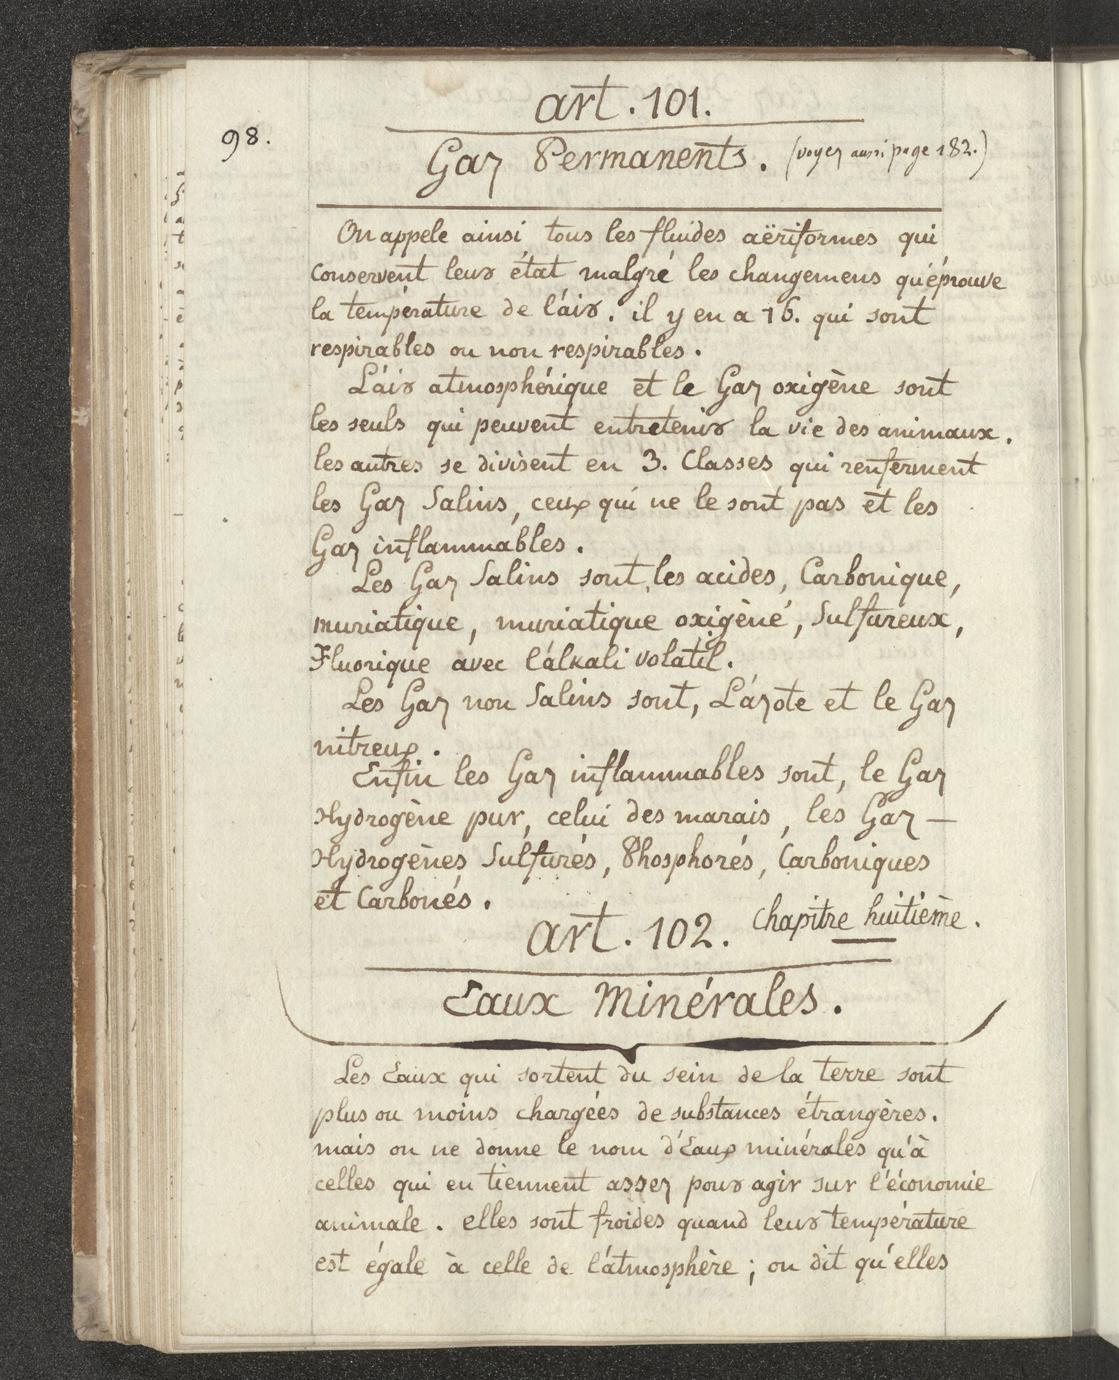 98.
art. 101.
Gaz Permanents. (voyez aussi page 182.)
On appele ainsi tous les fluides aëriformes qui
conservent leur état malgré les changemens qu'éprouve
la température de l'air. il y en a 15. qui sont
respirables ou non respirables.
L'air atmosphérique et le Gaz oxigène sont
les seuls qui peuvent entretenir la vie des animaux.
les autres se divisent en 3. Classes qui renferment
les Gaz Salins, ceux qui ne le sont pas et les
Gaz inflammables.
Les Gaz Salins sont, les acides, Carbonique,
muriatique, muriatique oxigèné, Sulfureux,
Fluorique avec l'alkali volatil.
Les Gaz non Salins sont, L'azote et le Gaz
nitreux.
Enfin les Gaz inflammables sont, le Gaz
Hydrogène pur, celui des marais, les Gaz —
Hydrogènes Sulfurés, Phosphorés, Carboniques
et Carbonés.
art. 102. Chapitre huitième.
Eaux Minérales.
Les Eaux qui sortent du sein de la terre sont
plus ou moins chargées de substances étrangères.
mais on ne donne le nom d'Eaux minérales qu'à
celles qui en tiennent assez pour agir sur l'économie
animale. elles sont froides quand leur température
est égale à celle de l'atmosphère ; on dit qu'elles